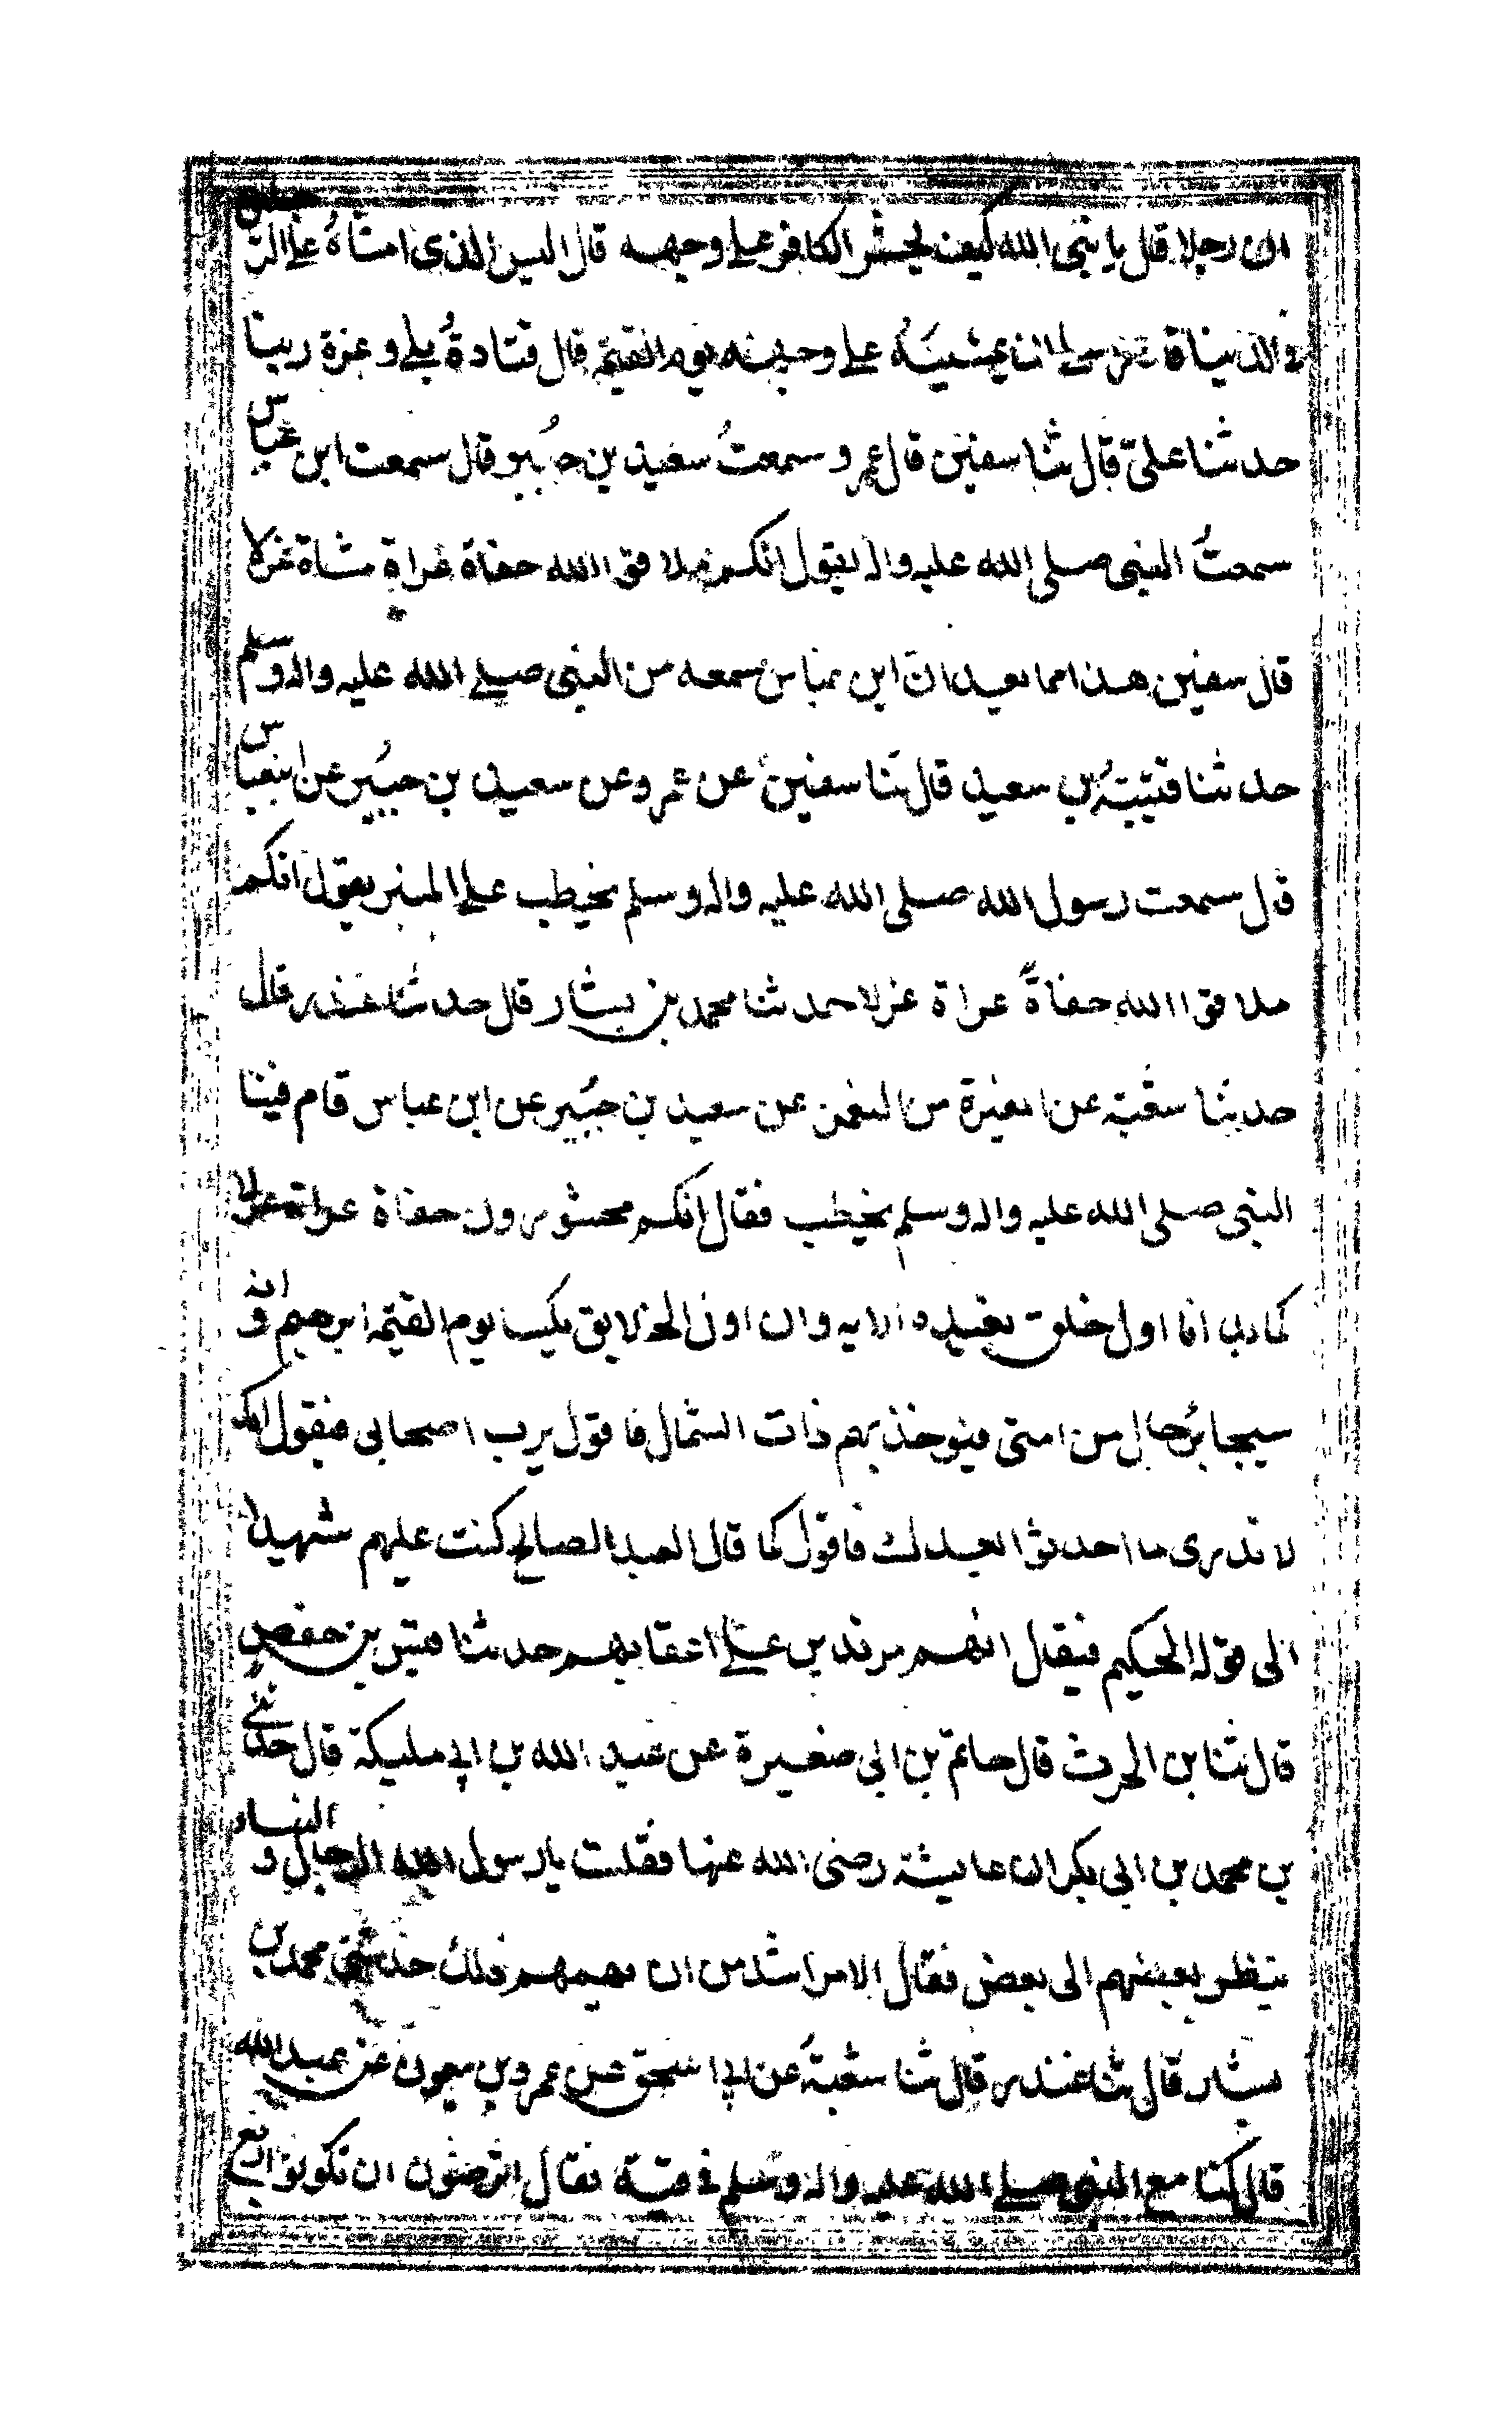 ان رجلا قال يا نبى الله كيف يحشر الكافر على وجهه قال اليس الذى امشاه على الرجلين
فى الدنيا قادر على ان يمشيه على وجهه يوم القيمة قال قتادة بلى وعزة ربنا
حدثنا علىّ قال ثنا سفين قال عمرو سمعتُ سعيد بن جُبير قال سمعت ابن عباس
سمعتُ النبى صلى الله عليه واله يقول انكم ملاقو االله حفاة عراة مشاة غرلا
قال سفين هذا مما نعد انّ ابن عباس سمعه من النبى صلى الله عليه واله وسلم
حدثنا قتيبة بن سعيد قال ثنا سفين عن عمرو عن سعيد بن جبير عن ابن عباس
قال سمعت رسول الله صلى الله عليه واله وسلم يخطب على المنبر يقول انكم
ملاقو االله حفاةً عراة غرلا حدثنا محمد بن بشار قال حدثنا غندر قال
حدثنا شعبة عن المغيرة بن النعمن عن سعيد بن جبير عن ابن عباس قام فينا
النبى صلى الله عليه واله وسلم يخطب فقال انكم محشورون حفاة عراة غرلا
كما بدانا اول خلق نعيده الاية وان اول الخلايق يكسا يوم القيمة ابرهيم وانه
سيجا برجال من امتى فيوخذ بهم ذات الشمال فاقول يرب اصحابى فيقول انك
لا تدرى ما احدثوا بعدك فاقول كما قال العبد الصالح كنت عليهم شهيدا
الى قوله الحكيم فيقال انهم مرتدين على اعقابهم حدثنا قيس بن حفص
قال ثنا بن الحرث قال حاتم بن ابى صغيرة عن عبد الله بن ابى مليكة قال حدثنى
بن محمد بن ابى بكر ان عايشة رضى الله عنها فقلت يا رسول الله الرجال و النساء
ينظر بعضهم الى بعض فقال الامر اشد من ان يهمهم ذلك حدثنى محمد بن
بشار قال ثنا غندر قال ثنا شعبة عن ابى اسحق عن عمرو بن ميمون عن عبد الله
قال كنا مع النبى صلى الله عليه واله وسلم فى قبة فقال اترضون ان تكونوا ربع